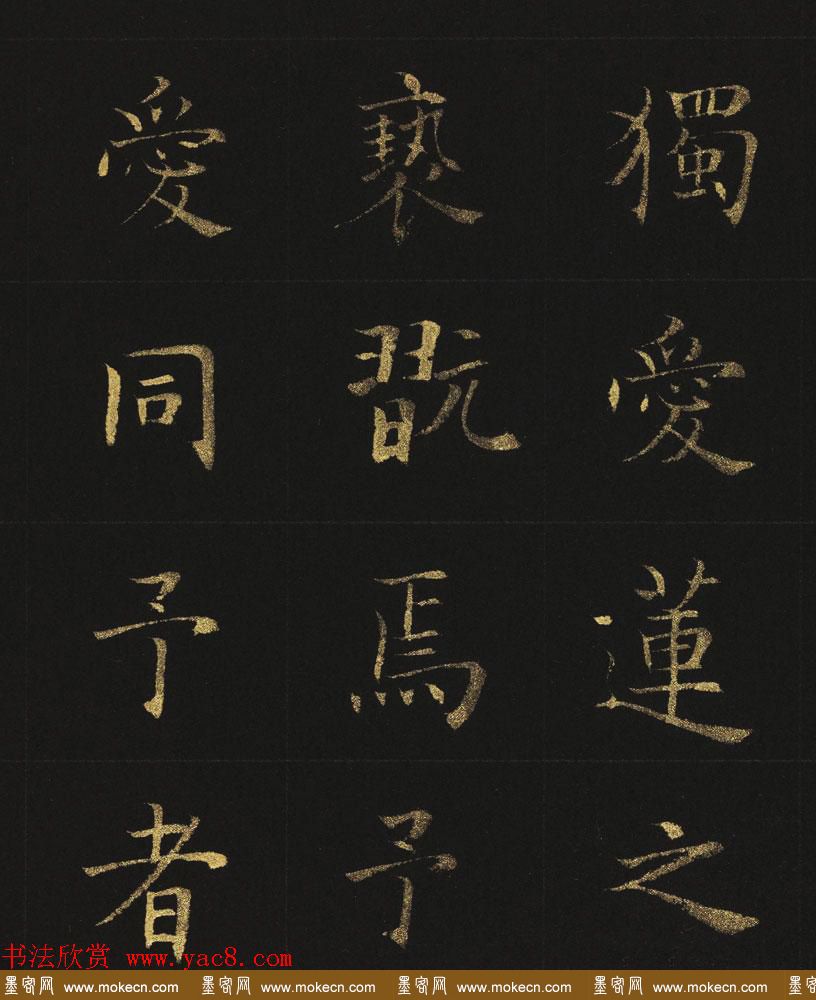 獨愛蓮之
褻翫焉予
愛同予者
书法欣赏 www.yac8.com
墨客网 www.mokecn.com 墨客网 www.mokecn.com 墨客网 www.mokecn.com 墨客网 www.mokecn.com 墨客网